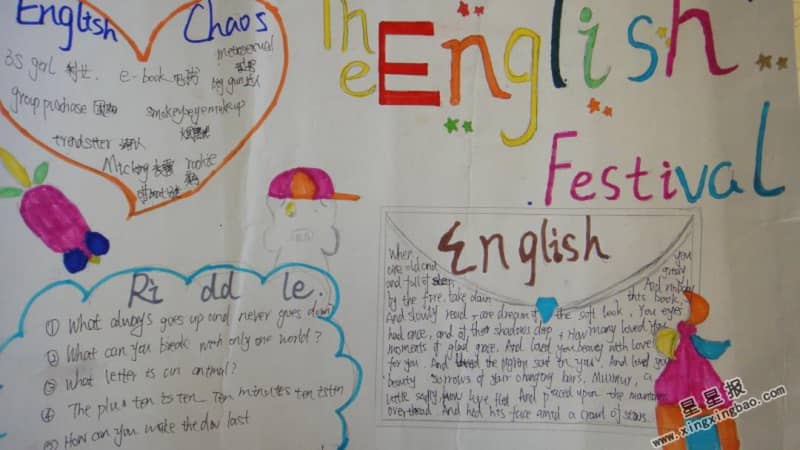 English Chaos
3S gal
e-book
metrosexual
big gun
group purchase
smokey eye makeup
trendsetter
rookie
The English
Festival
Riddle.
① What always goes up and never goes down
② What can you break with only one world?
③ What letter is an animal?
④ The plus ten is ten Ten minutes ten isten
⑤ How can you make the day last
English
When you
are old and grey
and full of sleep, And nodding
by the fire, take down this book,
And slowly read and dream of the soft look, You eyes
had once, and of their shadows deep, How many loved your
moments of glad grace, And loved your beauty with love
for you, And the pilgrim soul in you, And loved your
beauty sorrows of your changing Murmur, a
little sadly, how love fled And paced upon the mountains
overhead And hid his face amid a crowd of stars.
星星报
www.xingxingbao.com